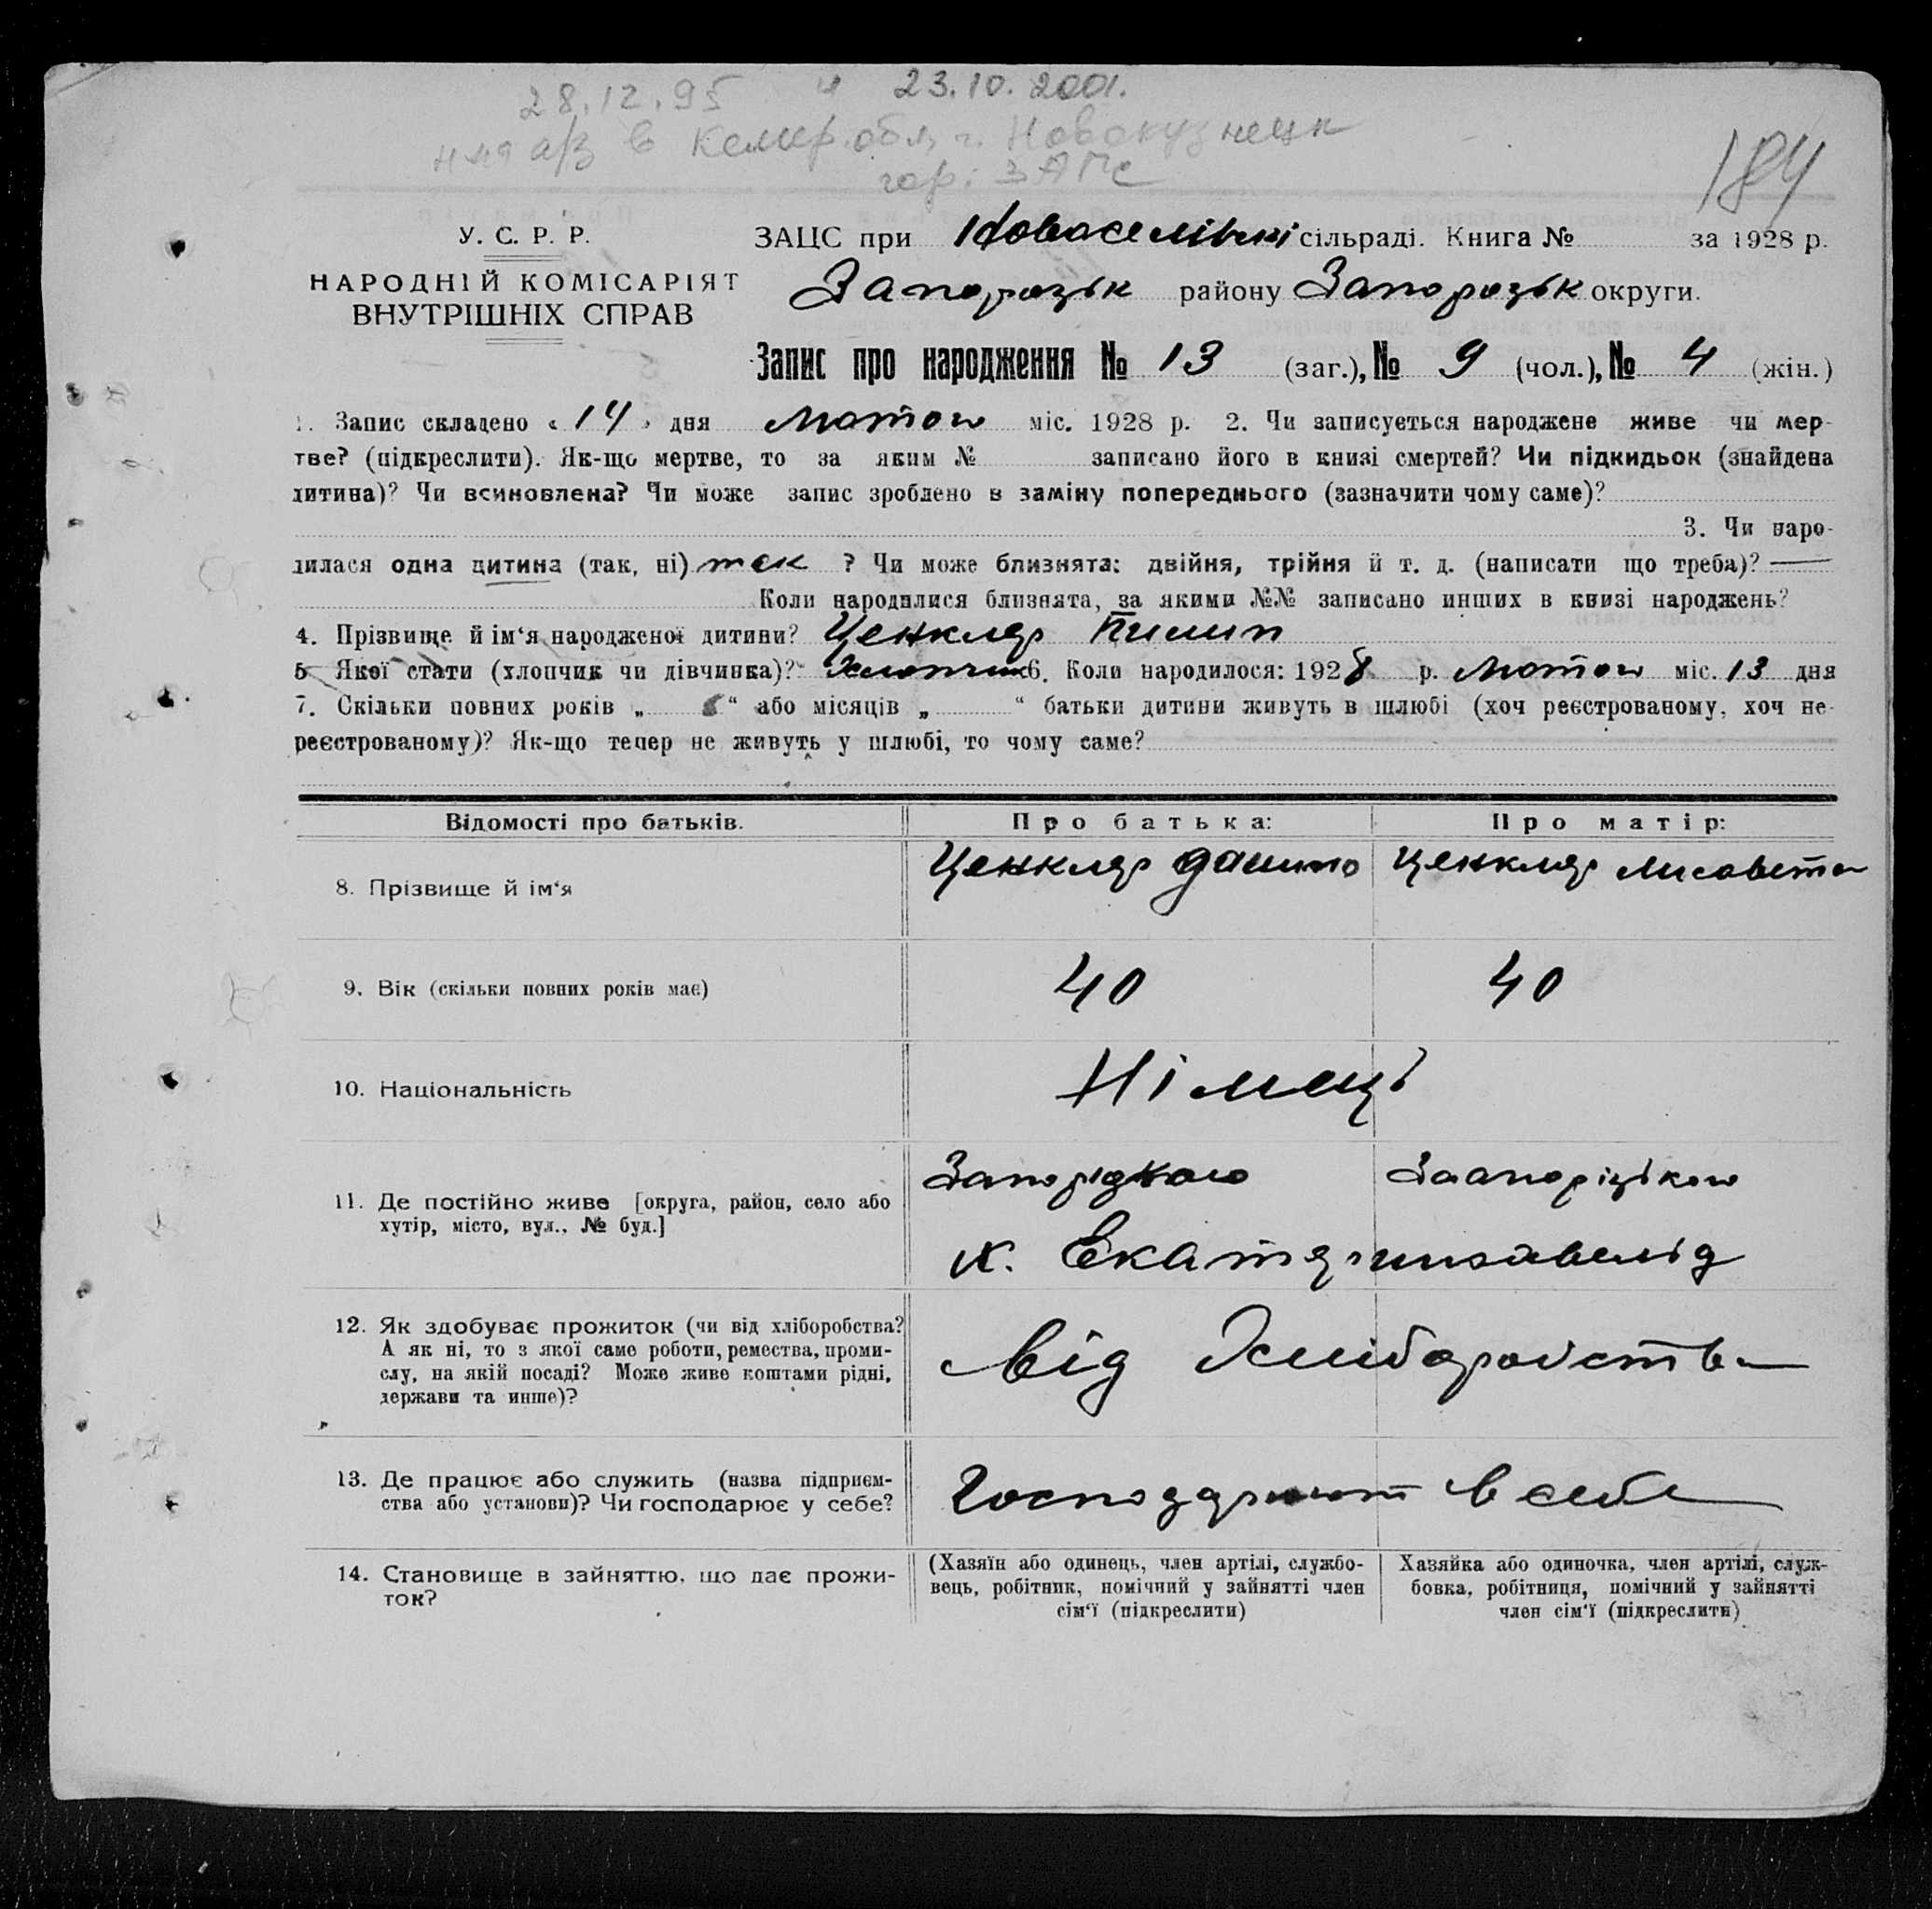 28.12.95 и 23.10.2001.
а/з в Кемер. обл, г. Новокузнецк
гор. ЗАГС
184
У. С. Р. Р.
НАРОДНІЙ КОМІСАРІЯТ
ВНУТРІШНІХ СПРАВ
ЗАЦС при Новоселівські сільраді. Книга № за 1928 р.
Запорозьк району Запорозьк округи.
Запис про народження № 13 (заг.), № 9 (чол.), № 4 (жін.)
1. Запис складено « 14 » дня Лютого міс. 1928 р. 2. Чи записується народжене живе чи мер-
тве? (підкреслити). Як-що мертве, то за яким № записано його в книзі смертей? Чи підкидьок (знайдена
дитина)? Чи всиновлена? Чи може запис зроблено в заміну попереднього (зазначити чому саме)?
3. Чи наро-
дилася одна дитина (так, ні) так ? Чи може близнята: двійня, трійня й т. д. (написати що треба)? —
Коли народилися близнята, за якими №№ записано инших в книзі народжень?
4. Прізвище й ім'я народженої дитини? Ценкляр Пилип
5 Якої стати (хлопчик чи дівчинка)? Хлопчик 6. Коли народилося: 1928 р. Лютого міс. 13 дня
7. Скільки повних років „ “ або місяців „ “ батьки дитини живуть в шлюбі (хоч реєстрованому, хоч не-
реєстрованому)? Як-що тепер не живуть у шлюбі, то чому саме?
Відомості про батьків. Про батька: Про матір:
8. Прізвище й ім'я Ценкляр Данило Ценкляр Лисавета
9. Вік (скільки повних років має) 40 40
10. Національність Німеці
11. Де постійно живе [округа, район, село або
хутір, місто, вул., № буд.]
Запоріdкого Заапоріцького
к.
12. Як здобуває прожиток (чи від хліборобства?
А як ні, то з якої саме роботи, ремества, проми-
слу, на якій посаді? Може живе коштами рідні,
держави та инше)?
Від Хліборобства
13. Де працює або служить (назва підприєм-
ства або установи)? Чи господарює у себе?
Господарюют в себе
14. Становище в зайняттю, що дає прожи-
ток?
(Хазяїн або одинець, член артілі, службо-
вець, робітник, помічний у зайнятті член
сім'ї (підкреслити)
Хазяйка або одиночка, член артілі, служ-
бовка, робітниця, помічний у зайнятті
член сім'ї (підкреслити)